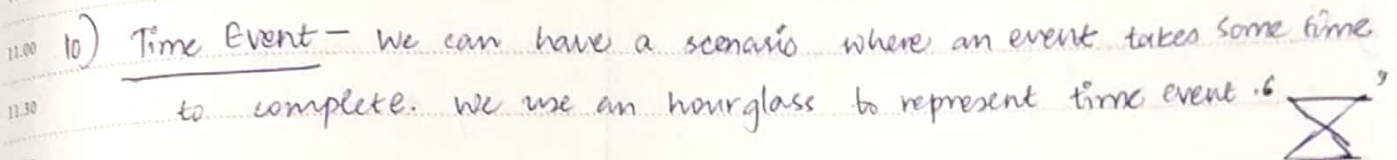 11.00 10) Time Event - We can have a scenario where an event takes some time
11.30 to complete. We use an hourglass to represent time event. “ ”